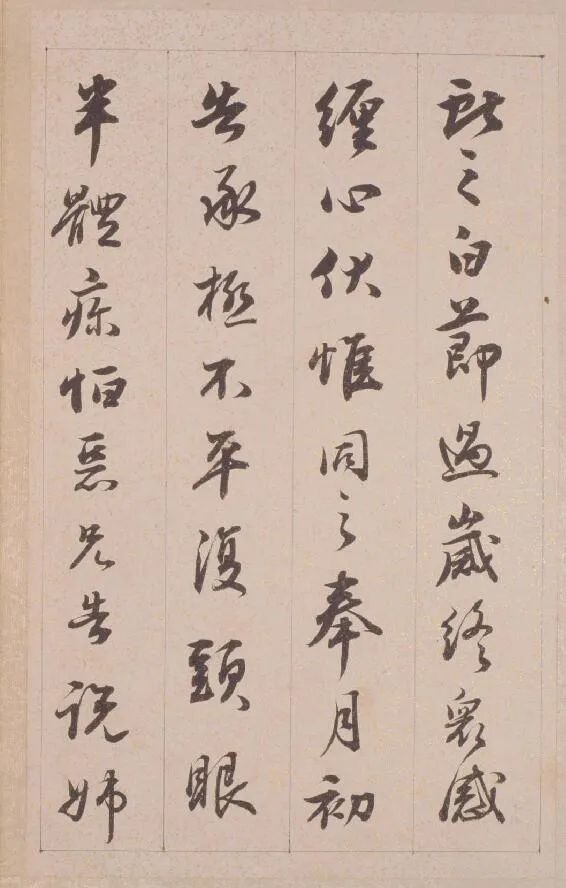 獻之白節過歲終衆感
纏心伏惟同之奉月初
告承極不平復頭眼
半體疼恒惡兄告説姊